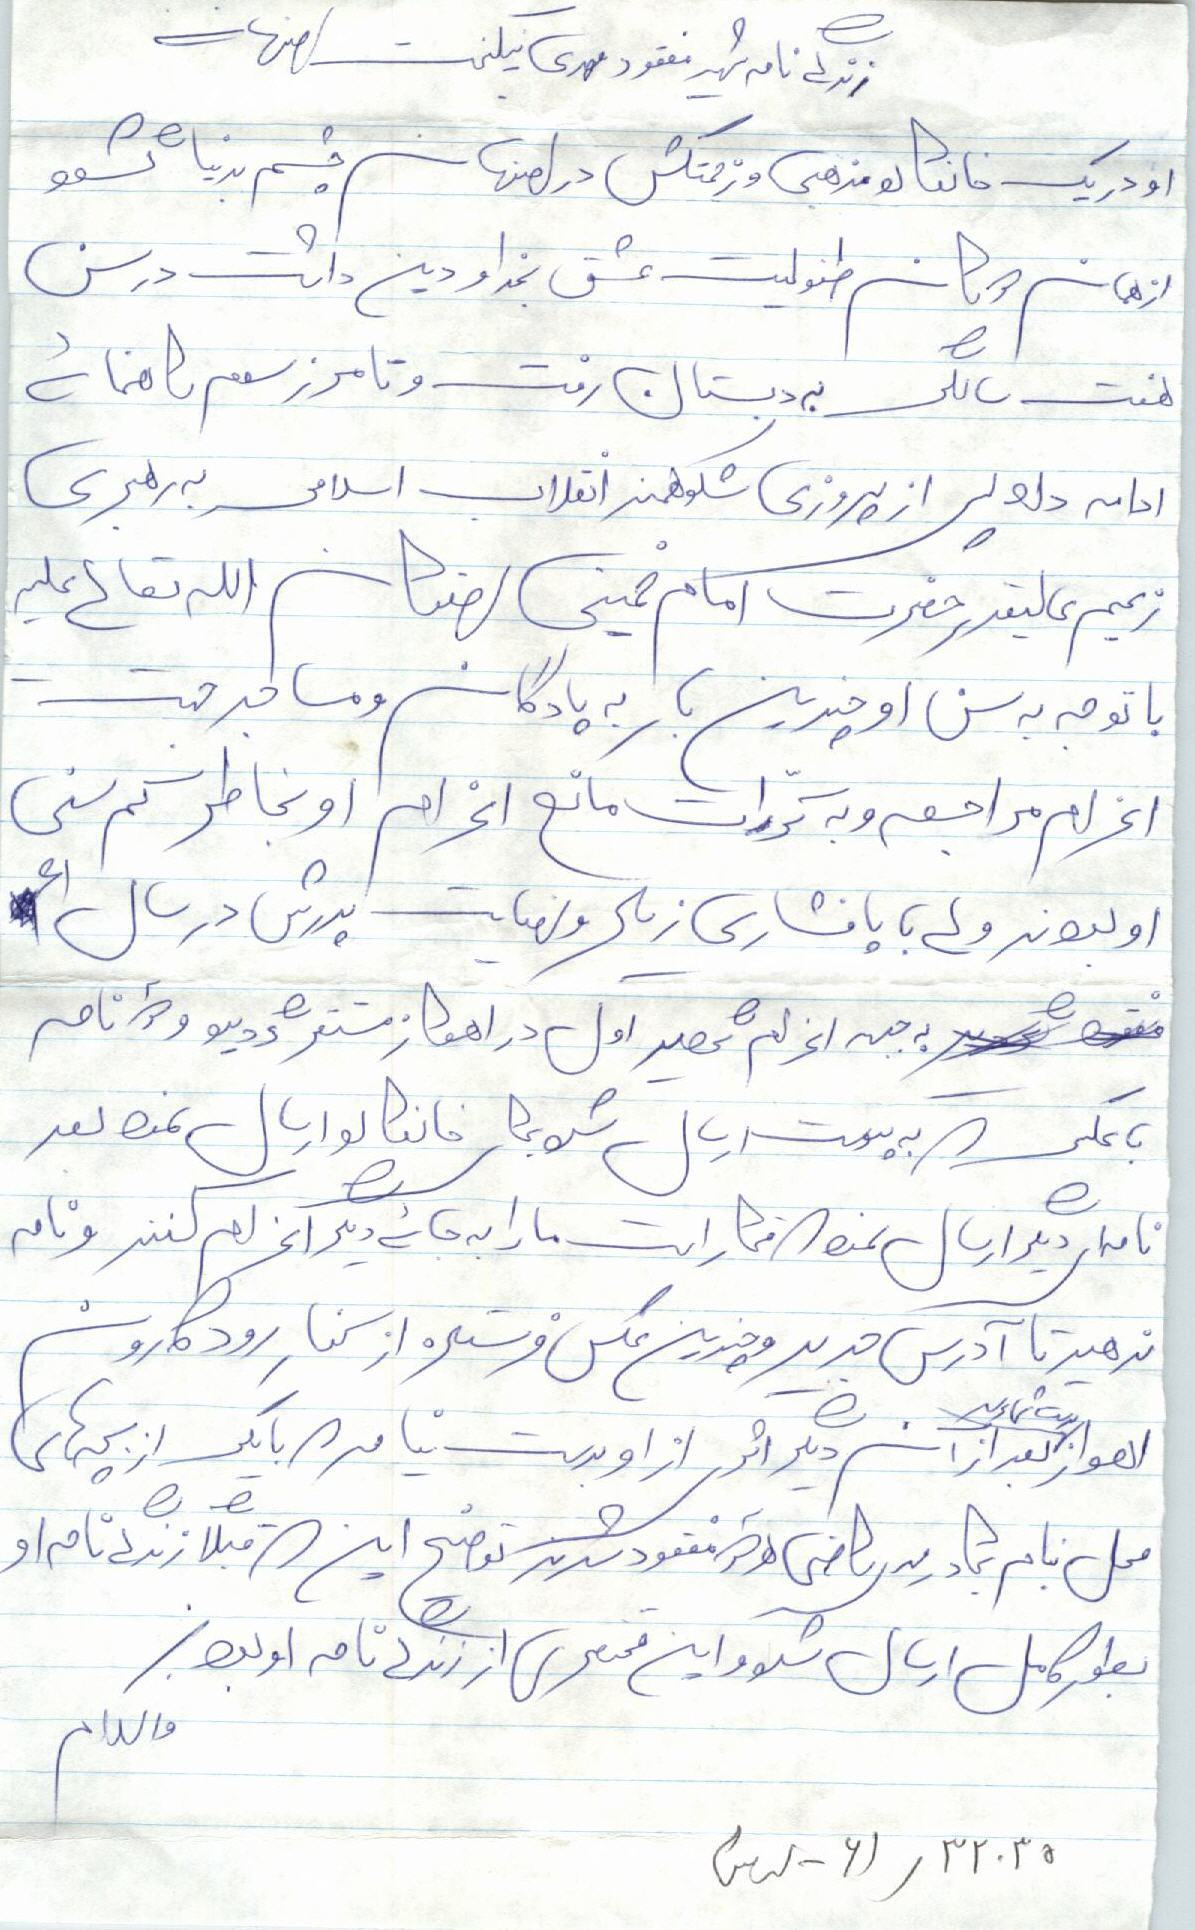 زندگی نامه شهید مفقود مهدی نیکبخت اصفهان
او در یک خانواده مذهبی و زحمتکش در اصفهان چشم بدنیا گشود
از همان دوران طفولیت عشق بخدا و دین داشت در سن
هفت سالگی به دبستان رفت و تا مرز سوم راهنمائی
ادامه داد پس از پیروزی شکوهمند انقلاب اسلامی به رهبری
زعیم عالیقدر حضرت امام خمینی رضوان الله تعالی علیه
با توجه به سن او چندین بار به پادگان و مساجد جهت
اعزام مراجعه و به کرات مانع اعزام او بخاطر کم سنی
او بودند ولی با پافشاری زیاد و رضایت پدرش در سال
به جبهه اعزام شد اول در اهواز مستقر گردید و نامه
با عکس که به پیوست ارسال شد برای خانواده ارسال نمود بعد
نامه ای دیگر ارسال نمود که قرار است ما را به جائی دیگر اعزام کنند و نامه
ندهید تا آدرس جدید و چندین عکس فرستاده از کنار رود کارون
اهواز بعد از آن دیگر اثری از او بدست نیامد که با یکی از بچه های
محل بنام ریاضی هر دو مفقود شدند توضیح این که قبلا زندگی نامه او
بطور کامل ارسال شد و این مختصری از زندگی نامه او بود
والسلام